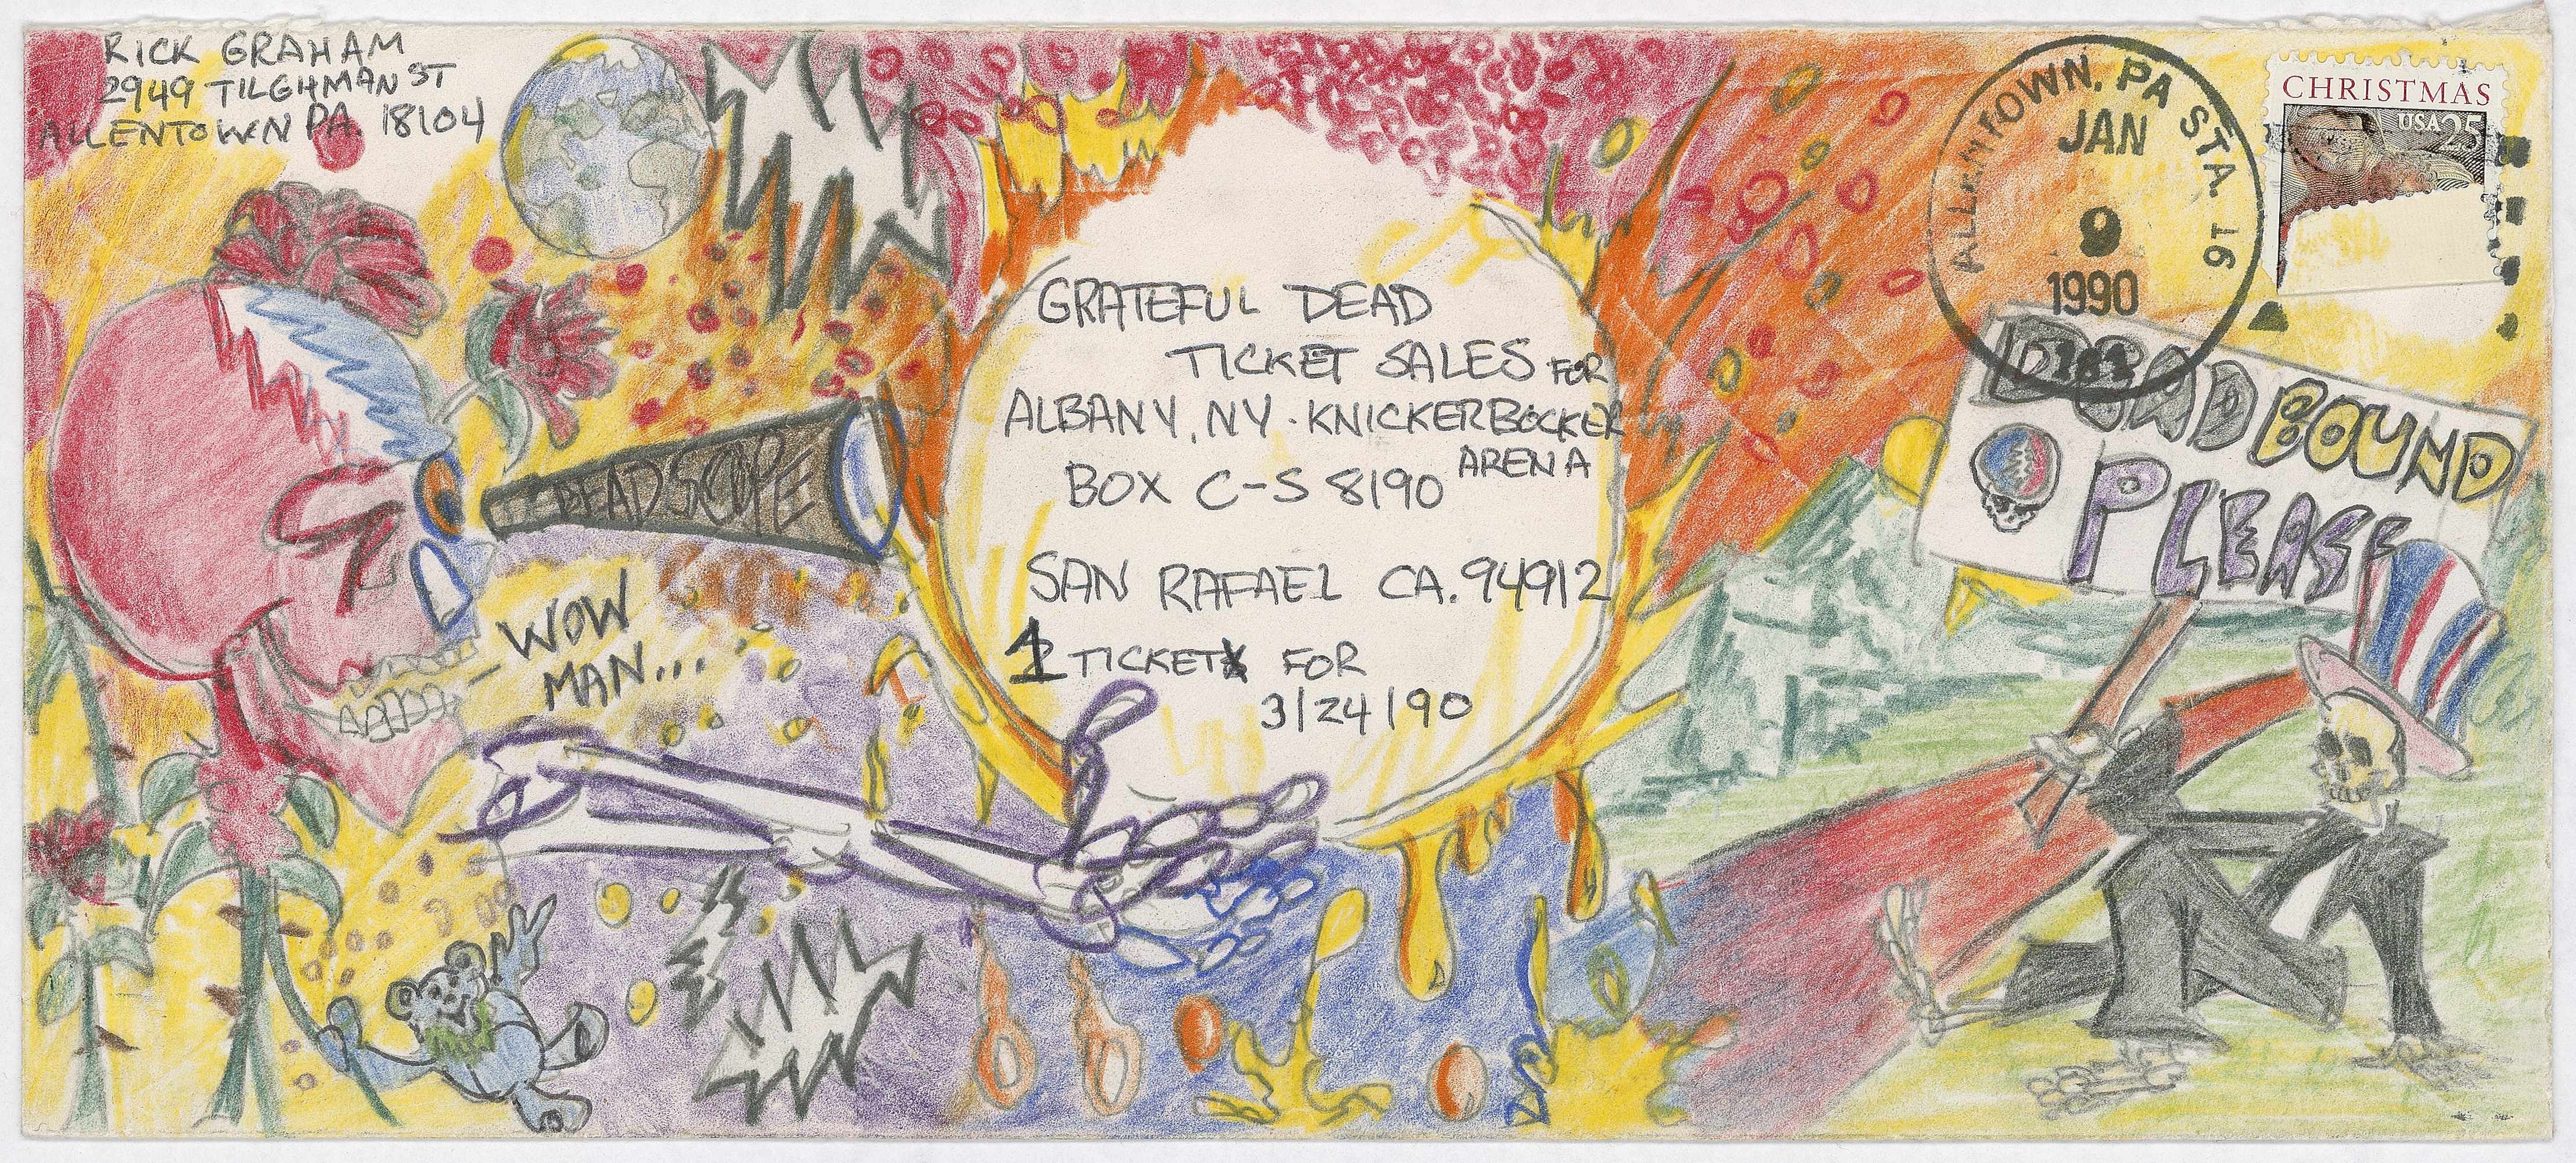 RICK GRAHAM
2949 TILGHMAN ST
ALLENTOWN PA. 18104
ALLENTOWN, PA STA. 16
JAN
9
1990
CHRISTMAS
USA 25
GRATEFUL DEAD
TICKET SALES FOR
ALBANY, NY · KNICKERBOCKER
ARENA
BOX C-S 8190
SAN RAFAEL CA. 94912
1 TICKET FOR
3/24/90
DEADSCOPE
WOW
MAN...
DEAD BOUND
PLEASE